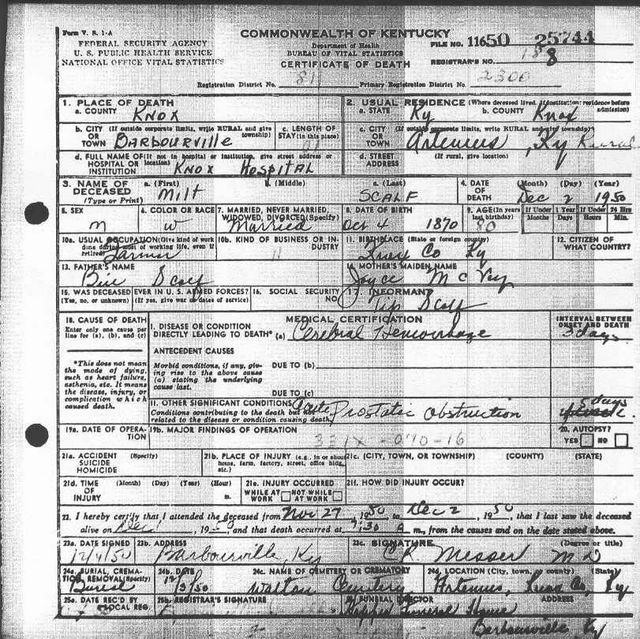 Form V. S. 1-A
COMMONWEALTH OF KENTUCKY
FEDERAL SECURITY AGENCY
U. S. PUBLIC HEALTH SERVICE
NATIONAL OFFICE VITAL STATISTICS
Department of Health
BUREAU OF VITAL STATISTICS
CERTIFICATE OF DEATH
FILE NO. 116 50 25744
REGISTRAR'S NO.
Registration District No. 811 Primary Registration District No. 2300
1. PLACE OF DEATH
a. COUNTY KNOX
2. USUAL RESIDENCE (Where deceased lived. If institution: residence before admission)
a. STATE Ky b. COUNTY Knox
b. CITY (If outside corporate limits, write RURAL and give township) OR TOWN BARBOURVILLE
c. LENGTH OF STAY (in this place)
c. CITY (If outside corporate limits, write RURAL and give township) OR TOWN Artemus, Ky Rural
d. FULL NAME OF (If not in hospital or institution, give street address or location) HOSPITAL OR INSTITUTION KNOX HOSPITAL
d. STREET ADDRESS (If rural, give location)
3. NAME OF DECEASED (Type or Print)
a. (First) MILT
b. (Middle)
c. (Last) SCALF
4. DATE OF DEATH (Month) (Day) (Year) Dec 2 1950
5. SEX M
6. COLOR OR RACE W
7. MARRIED, NEVER MARRIED, WIDOWED, DIVORCED (Specify) Married
8. DATE OF BIRTH Oct 4 1870
9. AGE (In years last birthday) 80
If Under 1 Year Months Days
If Under 24 Hrs Hours Min.
10a. USUAL OCCUPATION (Give kind of work done during most of working life, even if retired) Farmer
10b. KIND OF BUSINESS OR INDUSTRY
11. BIRTHPLACE (State or foreign country) Knox Co Ky
12. CITIZEN OF WHAT COUNTRY?
13. FATHER'S NAME Scalf
14. MOTHER'S MAIDEN NAME Joyce
15. WAS DECEASED EVER IN U.S. ARMED FORCES? (Yes, no, or unknown) (If yes, give war or dates of service)
16. SOCIAL SECURITY NO.
17. INFORMANT Scalf
18. CAUSE OF DEATH
Enter only one cause per line for (a), (b), and (c)
MEDICAL CERTIFICATION
INTERVAL BETWEEN ONSET AND DEATH
I. DISEASE OR CONDITION DIRECTLY LEADING TO DEATH* (a) Cerebral Hemorrhage 3 days
*This does not mean the mode of dying, such as heart failure, asthenia, etc. It means the disease, injury, or complication which caused death.
ANTECEDENT CAUSES
Morbid conditions, if any, giving rise to the above cause (a) stating the underlying cause last.
DUE TO (b)
DUE TO (c)
II. OTHER SIGNIFICANT CONDITIONS
Conditions contributing to the death but not related to the disease or condition causing death.
Acute Prostatic Obstruction 5 days
19a. DATE OF OPERATION
19b. MAJOR FINDINGS OF OPERATION
331X-070-16
20. AUTOPSY? YES NO
21a. ACCIDENT SUICIDE HOMICIDE (Specify)
21b. PLACE OF INJURY (e.g., in or about home, farm, factory, street, office bldg., etc.)
21c. (CITY, TOWN, OR TOWNSHIP) (COUNTY) (STATE)
21d. TIME OF INJURY (Month) (Day) (Year) (Hour) m.
21e. INJURY OCCURRED WHILE AT WORK NOT WHILE AT WORK
21f. HOW DID INJURY OCCUR?
22. I hereby certify that I attended the deceased from Nov 27 1950 to Dec 2, 1950 that I last saw the deceased
alive on Dec 1, 1950 and that death occurred at 7:30 A m., from the causes and on the date stated above.
23a. DATE SIGNED 12/4/50
23b. ADDRESS Barbourville, Ky
23c. SIGNATURE Messer M.D (Degree or title)
24a. BURIAL, CREMATION, REMOVAL (Specify) Burial
24b. DATE 12/3/50
24c. NAME OF CEMETERY OR CREMATORY Walton Cemetery
24d. LOCATION (City, town, or county) (State) Artemus, Knox Co, Ky
25a. DATE REC'D BY LOCAL REG.
25b. REGISTRAR'S SIGNATURE
FUNERAL DIRECTOR Funeral Home
Barbourville Ky